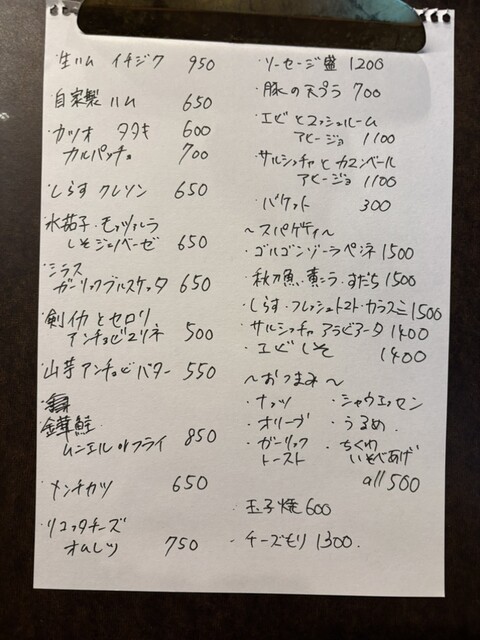 ・生ハム イチジク 950
・自家製ハム 650
・カツオ タタキ 600
カルパッチョ 700
・しらす クレソン 650
・水茄子・モッツァレラ
しそジェノベーゼ 650
・シラス
ガーリックブルスケッタ 650
・剣イカとセロリ
アンチョビマリネ 500
・山芋アンチョビバター 550
鮭
ムニエル or フライ 850
・メンチカツ 650
・リコッタチーズ
オムレツ 750
・ソーセージ盛 1200
・豚の天プラ 700
・エビとマッシュルーム
アヒージョ 1100
・サルシッチャとカマンベール
アヒージョ 1100
・バケット 300
〜スパゲティ〜
・ゴルゴンゾーラペンネ 1500
・秋刀魚・黄ニラ・すだち 1500
・しらす・フレッシュトマト・カラスミ 1500
・サルシッチャ アラビアータ 1400
・エビしそ 1400
〜おつまみ〜
・ナッツ ・シャウエッセン
・オリーブ ・うるめ
・ガーリック ・ちくわ
トースト いそべあげ
all 500
・玉子焼 600
・チーズもり 1300.